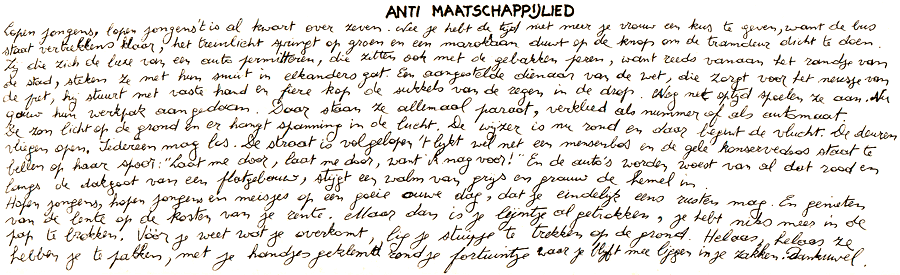 ANTI MAATSCHAPPIJLIED
Lopen jongens, lopen jongens 't is al kwart over zeven. Nee je hebt de tijd niet meer je vrouw een kus te geven, want de bus
staat vertrekkens klaar, het treinlicht springt op groen en een marokkaan duwt op de knop om de tramdeur dicht te doen.
Zij die zich de luxe van een auto permitteren, die zitten ook met de gebakken peren, want reeds vanaan het randje van
de stad, steken ze met hun snuit in elkanders gat. Een aangestelde dienaar van de wet, die zorgt voor het neusje van
de pret, hij stuurt met vaste hand en fiere kop de sukkels van de regen in de drop. Weg met spelen ze aan. Nu
gauw hun werkpak aangedaan. Daar staan ze allemaal paraat, verkleed als nummer of als automaat.
De zon licht op de grond en er hangt spanning in de lucht. De wijzer is nu rond en daar begint de vlucht. De deuren
vliegen open. Iedereen mag los. De straat is vol gelopen 't lijkt wel met een mensenlos en de gele konservedoos staat te
bellen op haar spoor: "Laat me door, laat me door, want 'k mag voor!" En de auto's worden woest van al dat rood en
langs de dakgoot van een flatgebouw, stijgt een walm van grijs en grauw de hemel in.
Hopen jongens, hopen jongens en meisjes op een goeie ouwe dag, dat je eindelijk eens rusten mag. En genieten
van de lente op de kosten van je rente. Maar dan is je lijntje al getrokken, je hebt niks meer in de
pap te brokken. Vóór je weet wat je overkomt, lig je stuipje te trekken op de grond. Helaas, helaas ze
hebben je te pakken, met je handjes geklemd rond je fortuintje waar je blijft mee liggen in je zakken. Dankuwel.